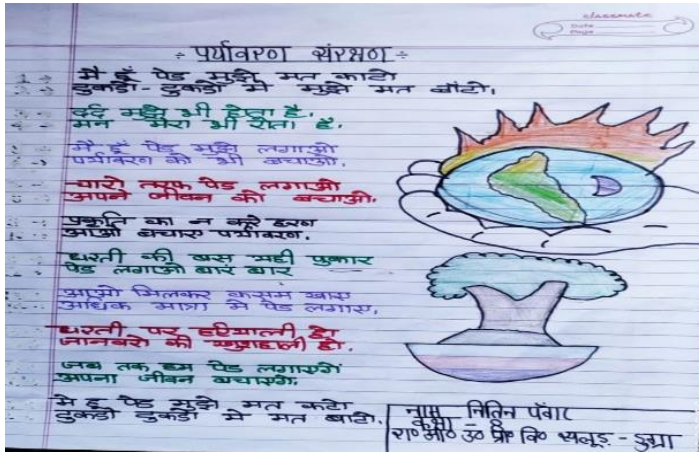 classmate
Date
Page
÷ पर्यावरण संरक्षण ÷
मै हूँ पेड मुझे मत काटो
टुकडो - टुकडो मे मुझे मत बाँटो,
दर्द मुझे भी होता है,
मन मेरा भी रोता है,
मै हूँ पेड मुझे लगाओ
पर्यावरण को भी बचाओ,
चारो तरफ पेड लगाओ
अपने जीवन को बचाओ,
प्रकृति का न करे हरण
आओ बचाए पर्यावरण,
धरती की बस यही पुकार
पेड लगाओ बार बार
आओ मिलकर कसम खाए
अधिक मात्रा मे पेड लगाए,
धरती पर हरियाली हो
जानवरो की खुशहाली हो,
जब तक हम पेड लगाएगे
अपना जीवन बचाएगे,
मै हू पेड मुझे मत काटो
टुकडो टुकडो मे मत बाटो,
नाम नितिन पंवार
कक्षा - 8
रा० आ० उ० प्रा० वि० थलूड - डुग्रा